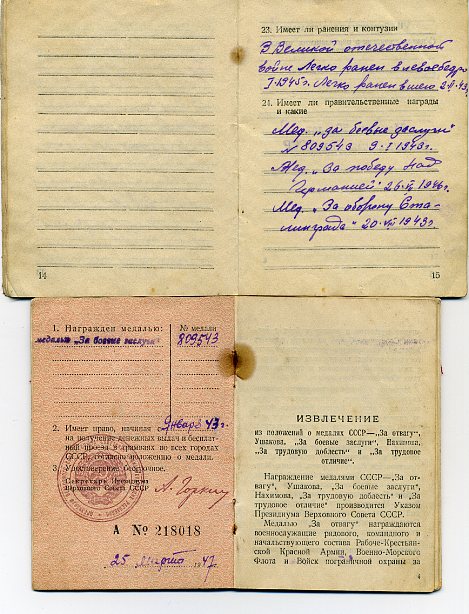 23. Имеет ли ранения и контузии
В Великой отечественной
войне Легко ранен в левое бедро
I-1945 г. Легко ранен в шею 2-II-43 г.
24. Имеет ли правительственные награды
и какие
Мед. „За боевые заслуги"
№ 809543 9-I-1943 г.
Мед. „За победу над
Германией" 26-VI 1946 г.
Мед. „За оборону Ста-
линграда" 20-VII 1943 г.
14
15
1. Награжден медалью:
№ медали
медалью „За боевые заслуги"
809543
2. Имеет право, начиная с января 43 г.
на получение денежных выдач и бесплат-
ный проезд в трамваях во всех городах
СССР, согласно положению о медали.
3. Удостоверение бессрочное.
Секретарь Президиума
Верховного Совета СССР
А. Горкин
А № 218018
25 марта 1947 г.
ИЗВЛЕЧЕНИЕ
из положений о медалях СССР—„За отвагу",
Ушакова, „За боевые заслуги", Нахимова,
„За трудовую доблесть" и „За трудовое
отличие".
Награждение медалями СССР—„За от-
вагу", Ушакова, „За боевые заслуги",
Нахимова, „За трудовую доблесть" и „За
трудовое отличие" производится Указом
Президиума Верховного Совета СССР.
Медалью „За отвагу" награждаются
военнослужащие рядового, командного и
начальствующего состава Рабоче-Крестьян-
ской Красной Армии, Военно-Морского
Флота и Войск пограничной охраны за
4